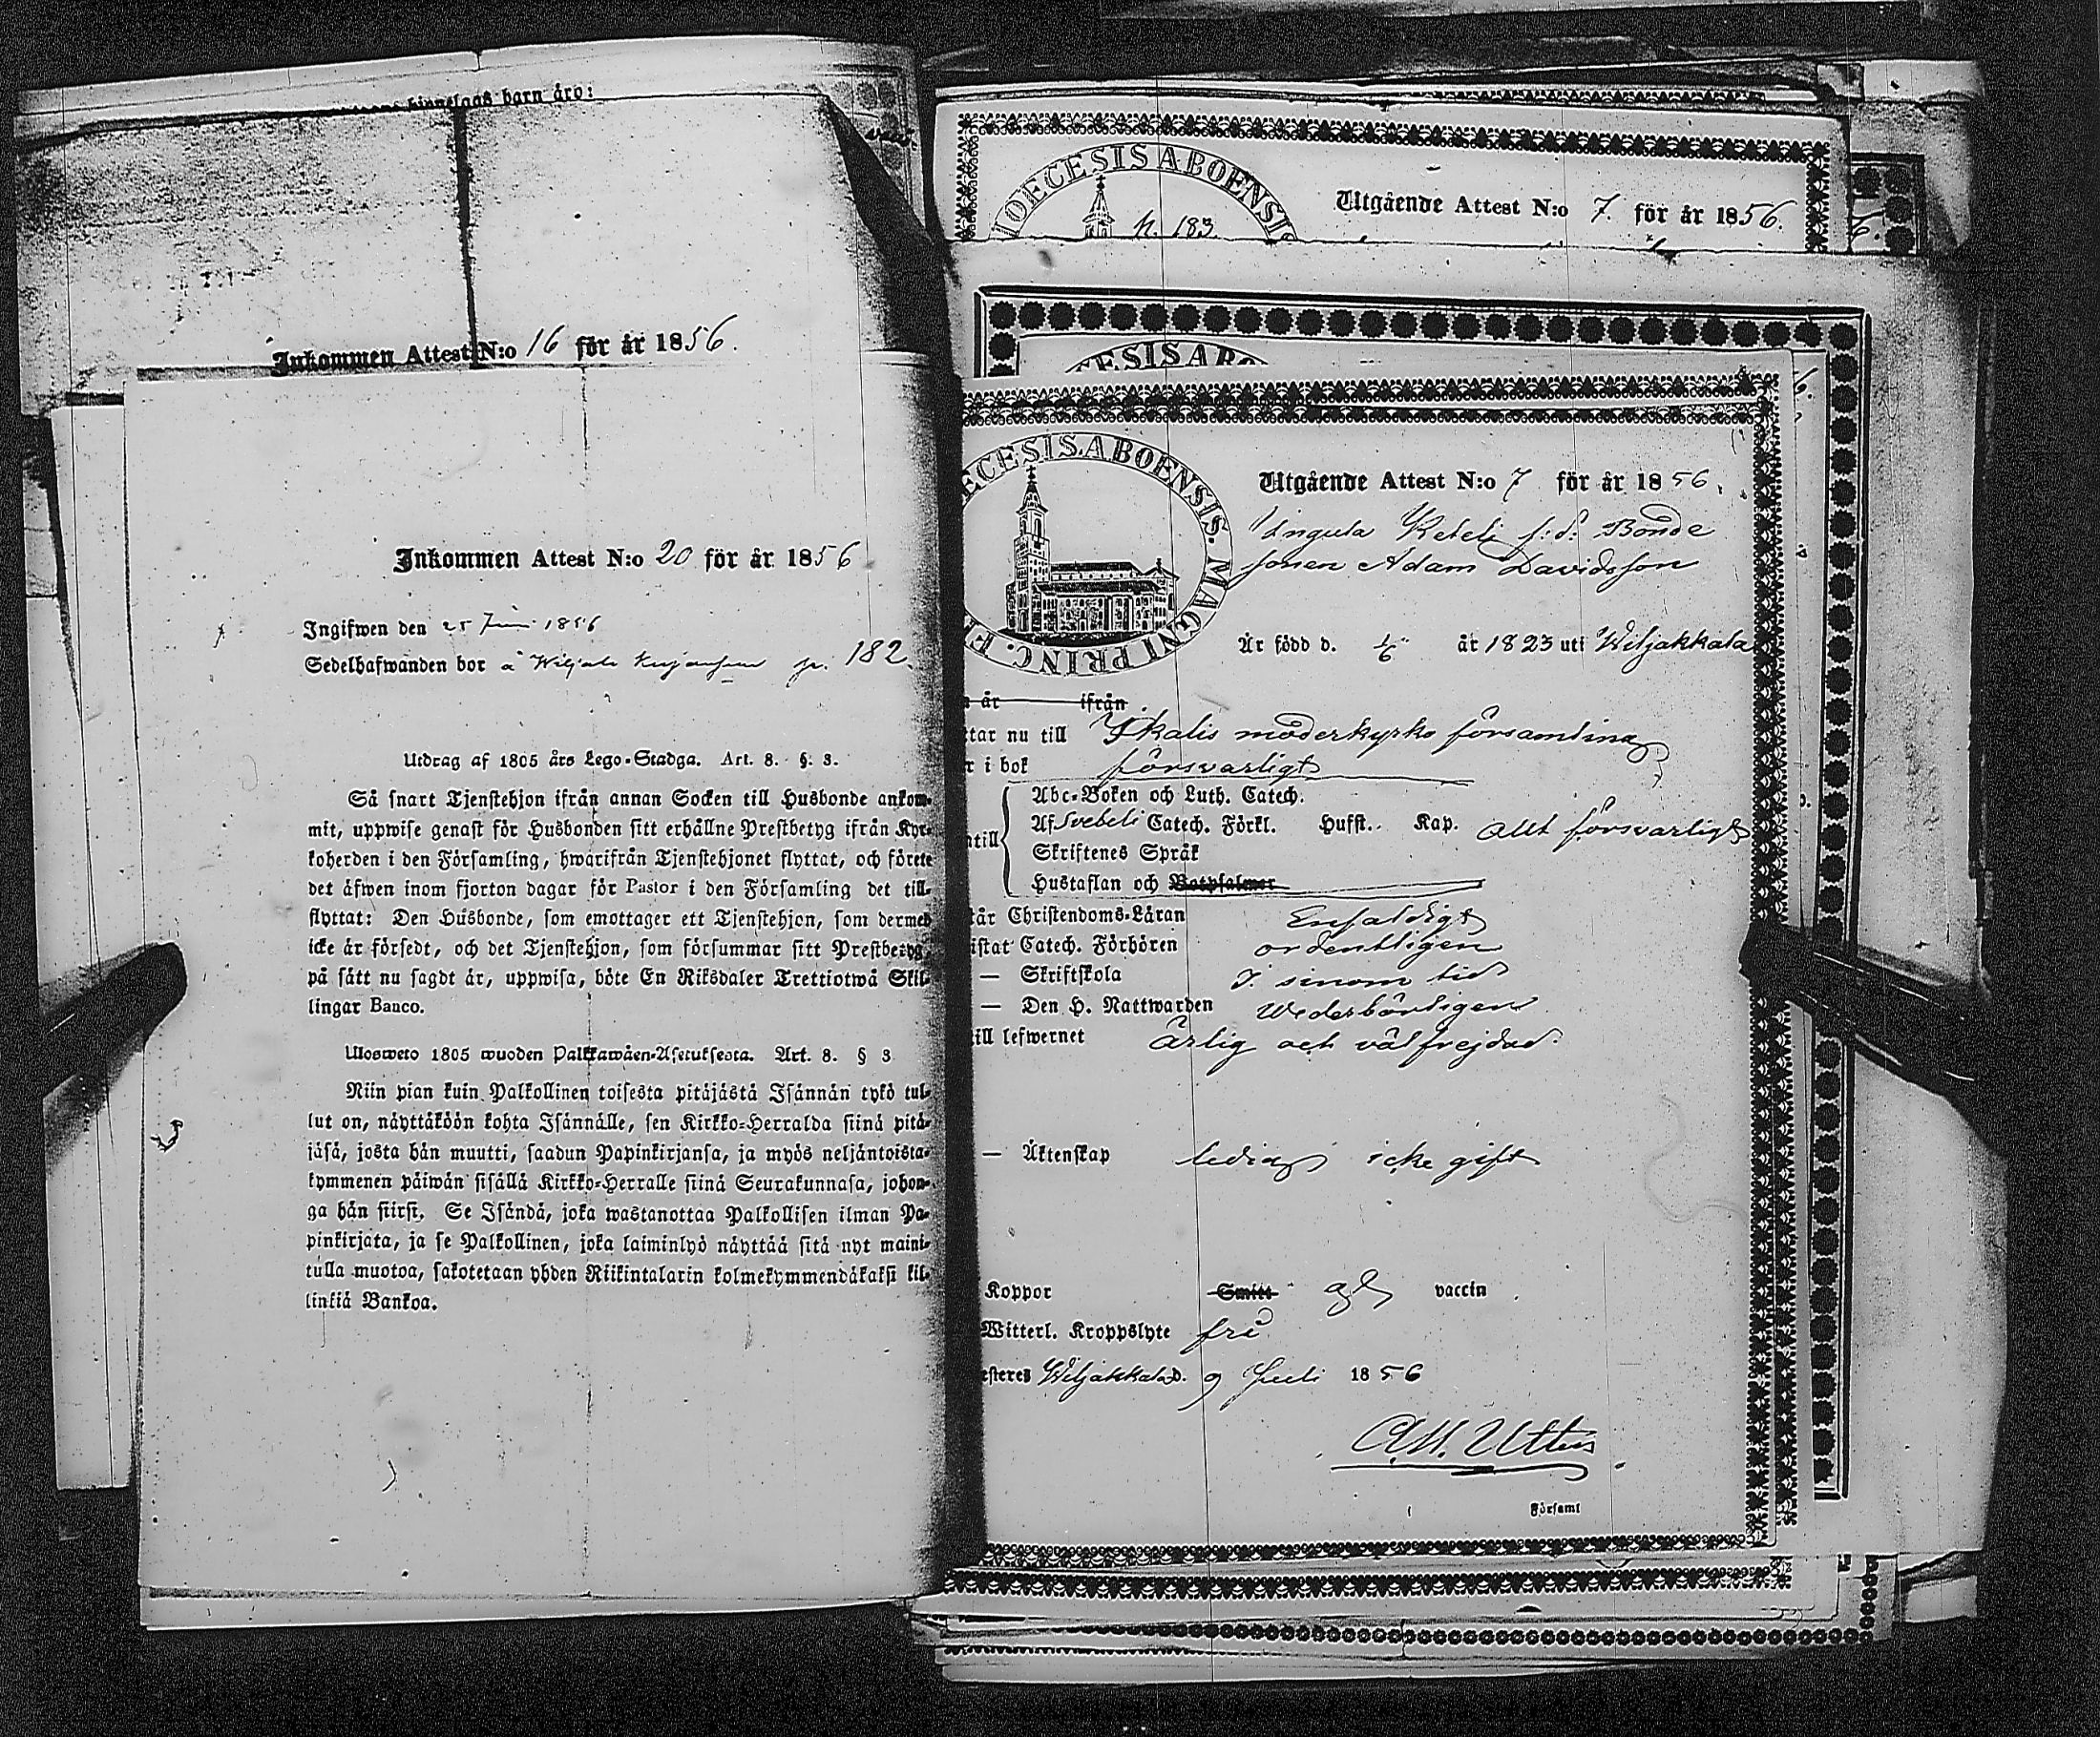 hionelags barn äro:
Inkommen Attest N:o 16 för år 1856.
Inkommen Attest N:o 20 för år 1856
Ingifwen den 25 Juni 1856
Sedelhafwanden bor å p. 182.
Utdrag af 1805 års Lego-Stadga. Art. 8. §. 3.
Så snart Tjenstehjon ifrån annan Socken till Husbonde ankom-
mit, uppwise genast för Husbonden sitt erhållne Prestbetyg ifrån Kyr-
koherden i den Församling, hwarifrån Tjenstehjonet flyttat, och förete
det äfwen inom fjorton dagar för Pastor i den Församling det till-
flyttat: Den Husbonde, som emottager ett Tjenstehjon, som dermed
icke är försedt, och det Tjenstehjon, som försummar sitt Prestbetyg,
på sätt nu sagdt är, uppwisa, böte En Riksdaler Trettiotwå Skil-
lingar Banco.
Ulosweto 1805 wuoden Palkkawäen-Asetuksesta. Art. 8. § 3
Niin pian kuin Palkollinen toisesta pitäjästä Isännän tykö tul-
lut on, näyttäköön kohta Isännälle, sen Kirkko-Herralda siinä pitä-
jäsä, josta hän muutti, saadun Papinkirjansa, ja myös neljäntoista-
kymmenen päiwän sisällä Kirkko-Herralle siinä Seurakunnasa, johon-
ga hän siirsi. Se Isändä, joka wastanottaa Palkollisen ilman Pa-
pinkirjata, ja se Palkollinen, joka laiminlyö näyttää sitä nyt maini-
tulla muotoa, sakotetaan yhden Riikintalarin kolmekymmendäkaksi kil-
linkiä Bankoa.
IOECESIS ABOENSIS
p. 183.
Utgående Attest N:o 7. för år 1856.
6.
ECESIS ABO
ECESIS. ABOENSIS. MAGNI PRINC. F
Utgående Attest N:o 7 för år 1856.
Ingula Keteli f:d: Bonde
sonen Adam Davidsson
Är född d. 1/6 år 1823 uti Wiljakkala
år ifrån
tar nu till Ikalis moderkyrko församling
r i bok försvarligt
Abc-Boken och Luth. Catech.
Af Svebeli Catech. Förkl. Hufst. Kap. allt försvarligt
ntill
Skriftenes Språk
Hustaflan och Botpsalmer
tår Christendoms-Läran Enfaldigt
istat Catech. Förhören ordentligen
— Skriftskola I sinom tid
— Den H. Nattwarden Wederbörligen
till lefwernet Ärlig och välfrejdad.
— Äktenskap ledig icke gift
Koppor Smitt vaccin
Witterl. Kroppslyte fri
esteres Wiljakkala d. 9 Juli 1856
Församl